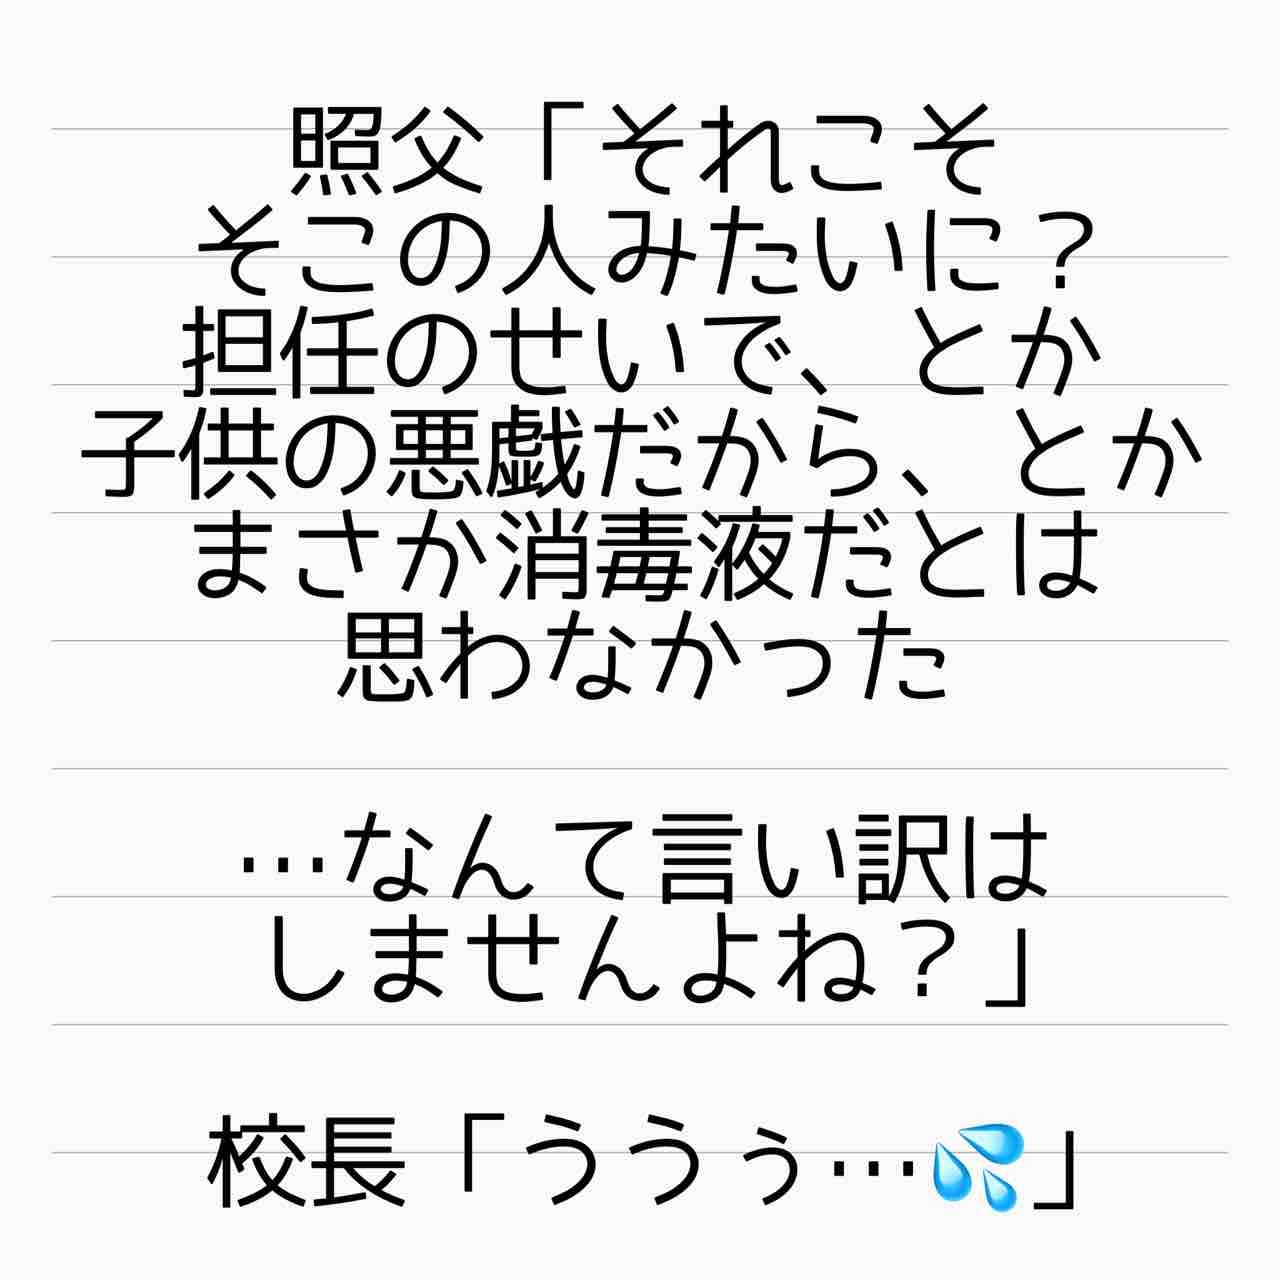 照父「それこそ
そこの人みたいに？
担任のせいで、とか
子供の悪戯だから、とか
まさか消毒液だとは
思わなかった
…なんて言い訳は
しませんよね？」
校長「ううぅ…💦」